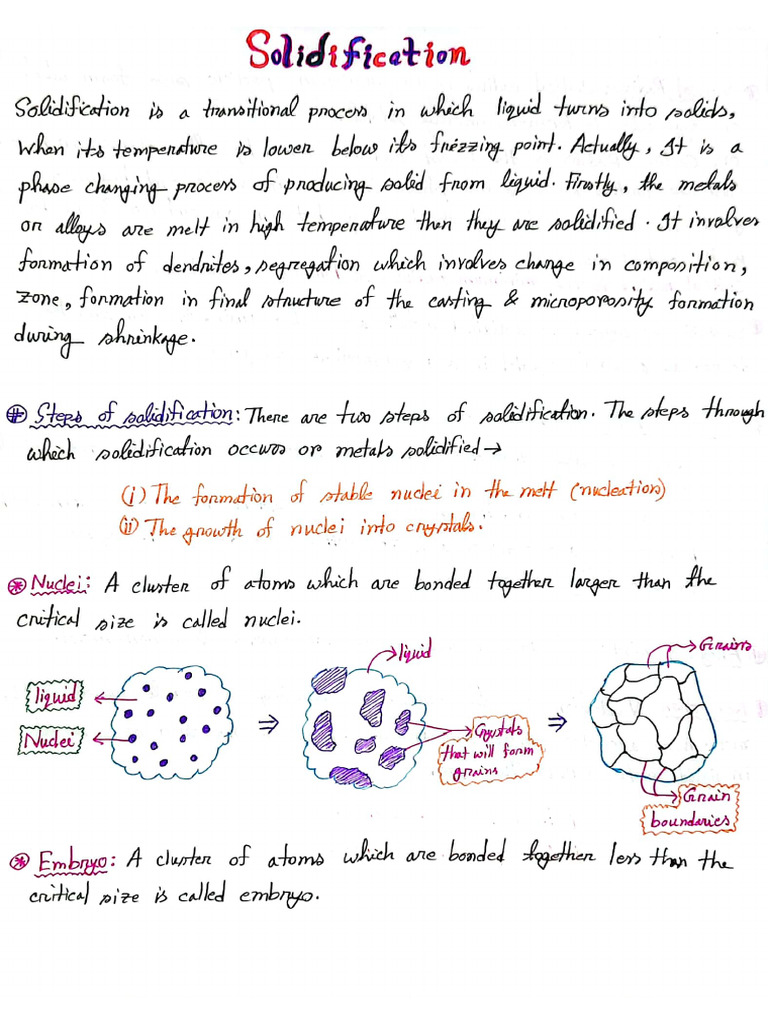 Solidification
Solidification is a transitional process in which liquid turns into solids,
When its temperature is lower below its frezzing point. Actually, It is a
phase changing process of producing solid from liquid. Firstly, the metals
or alloys are melt in high temperature then they are solidified. It involves
formation of dendrites, segregation which involves change in composition,
zone, formation in final structure of the casting & microporosity formation
during shrinkage.
# Steps of solidification: There are two steps of solidification. The steps through
which solidification occurs or metals solidified →
(i) The formation of stable nuclei in the melt (nucleation)
(ii) The growth of nuclei into crystals.
* Nuclei: A cluster of atoms which are bonded together larger than the
critical size is called nuclei.
liquid
Nuclei
⇒
liquid
Crystals
that will form
grains
⇒
Grains
Grain
boundaries
* Embryo: A cluster of atoms which are bonded together less than the
critical size is called embryo.